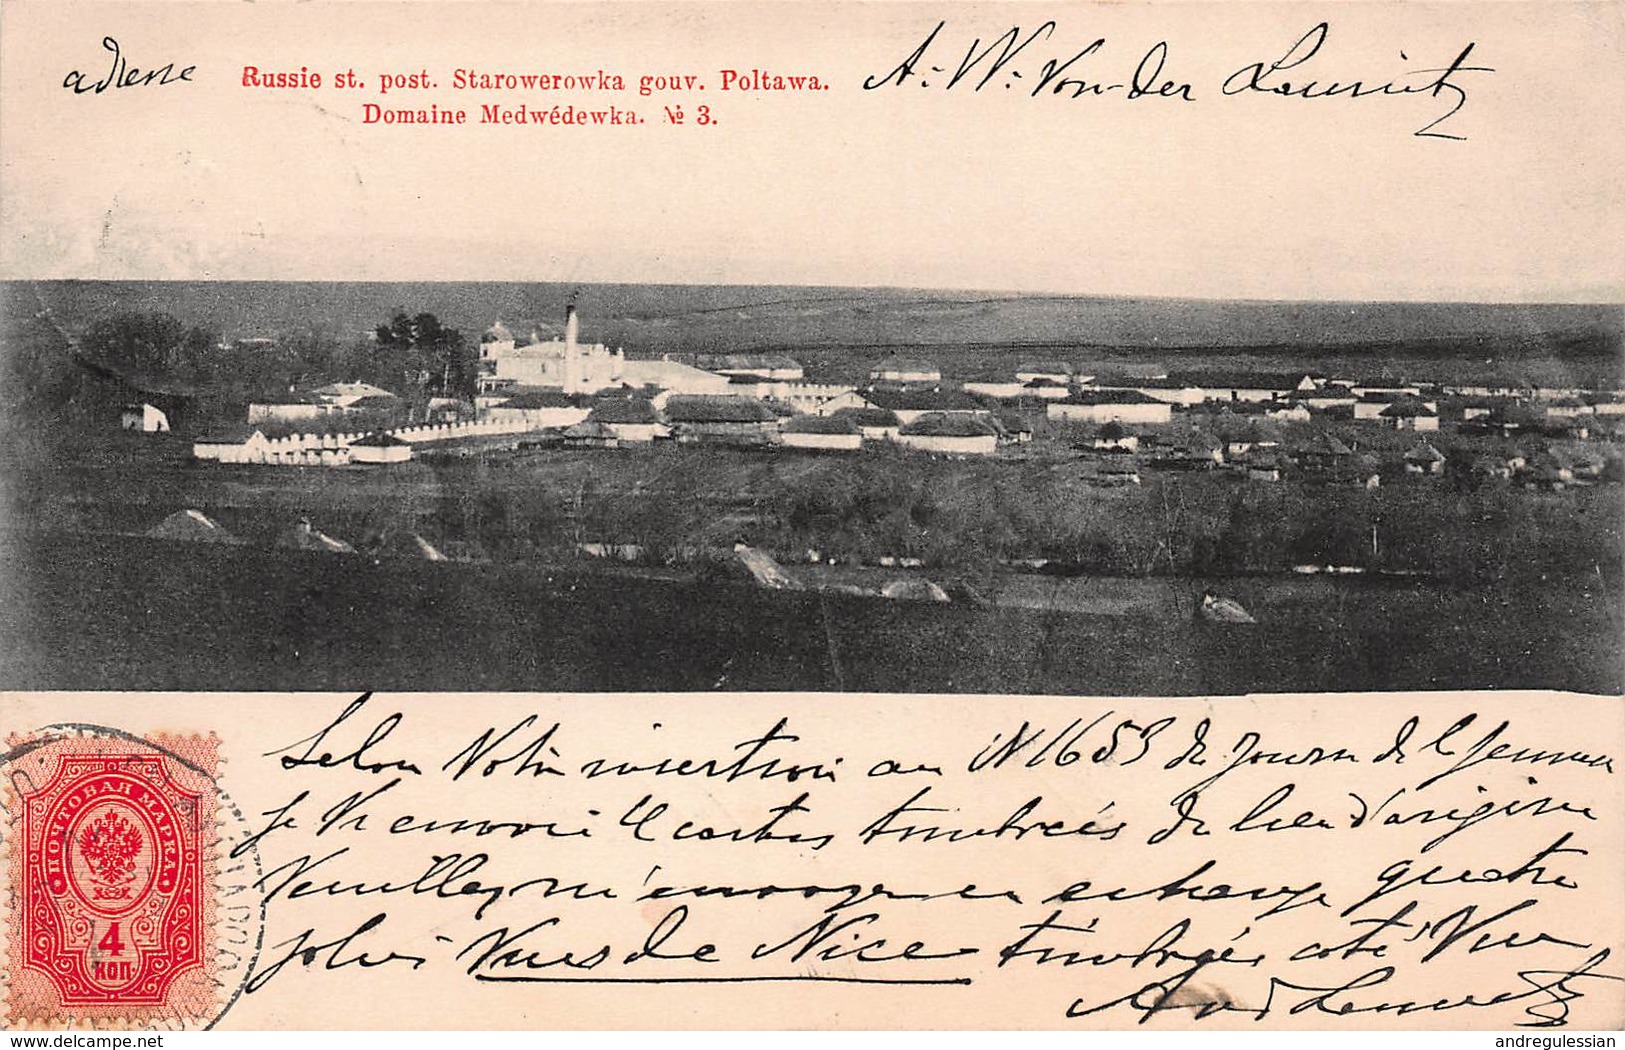 adresse Russie st. post. Starowerowka gouv. Poltawa. A. W. Von-der Launitz
Domaine Medwédewka. № 3.
Selon Votre insertion au N 1653 du Journ de l
Je Vs envoie 4 cartes timbrées du lieu d'origine
Veuillez m'envoyer en echange quatre
jolies Vues de Nice timbrées coté Vue
ПОЧТОВАЯ МАРКА.
4
КОП.
delcampe.net
andregulessian